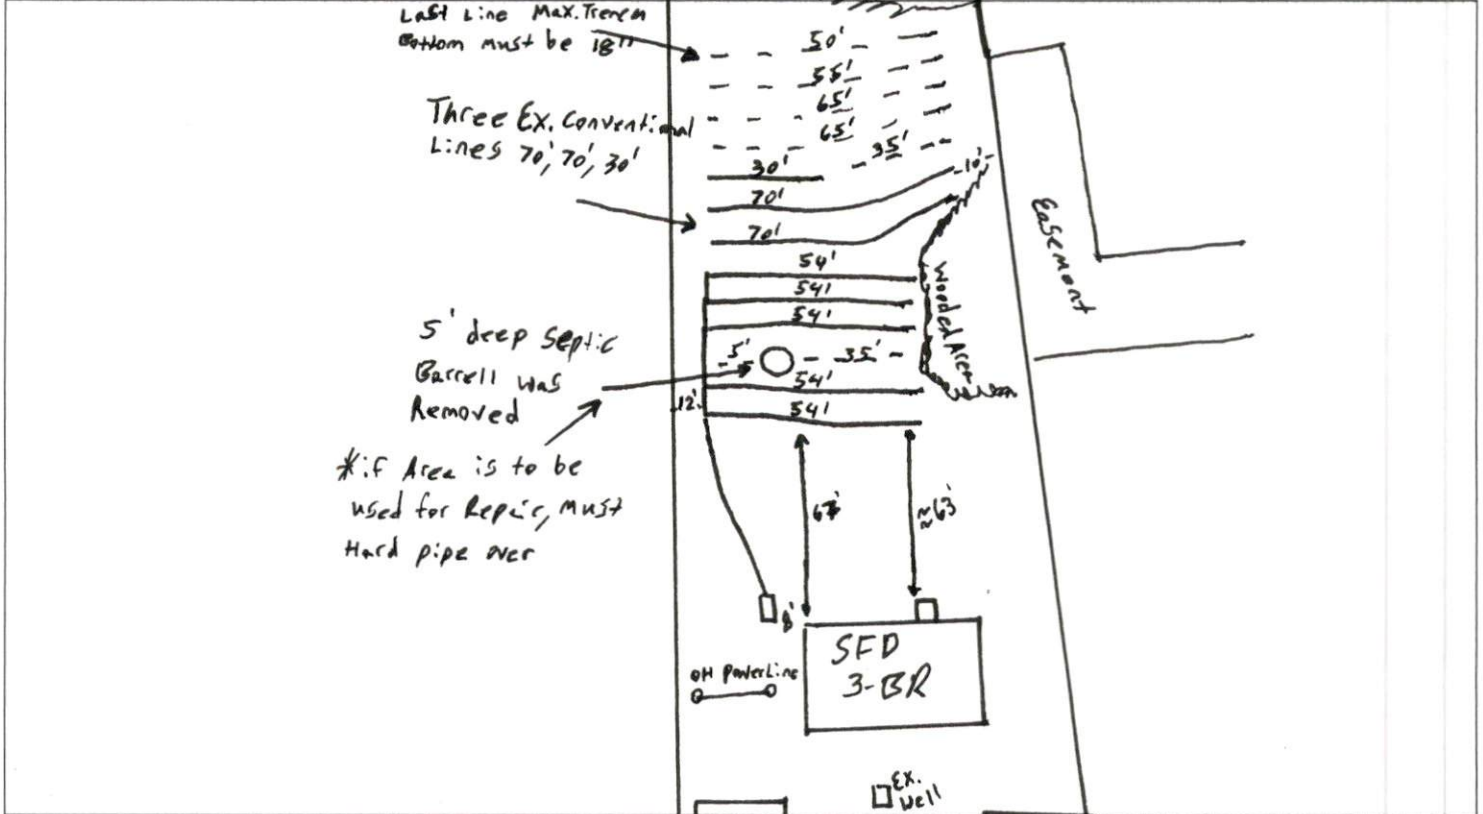 Last Line Max. Trench
Bottom must be 18"
50'
55'
65'
65'
35'
Three Ex. Conventional
Lines 70', 70', 30'
30'
10'
70'
70'
Easement
54'
54'
54'
Wooded Area
5' deep Septic
Barrell was
Removed
5'
35'
54'
12'
54'
*if Area is to be
used for Repair, must
Hard pipe over
≈63'
8'
SFD
3-BR
OH PowerLine
Ex.
Well